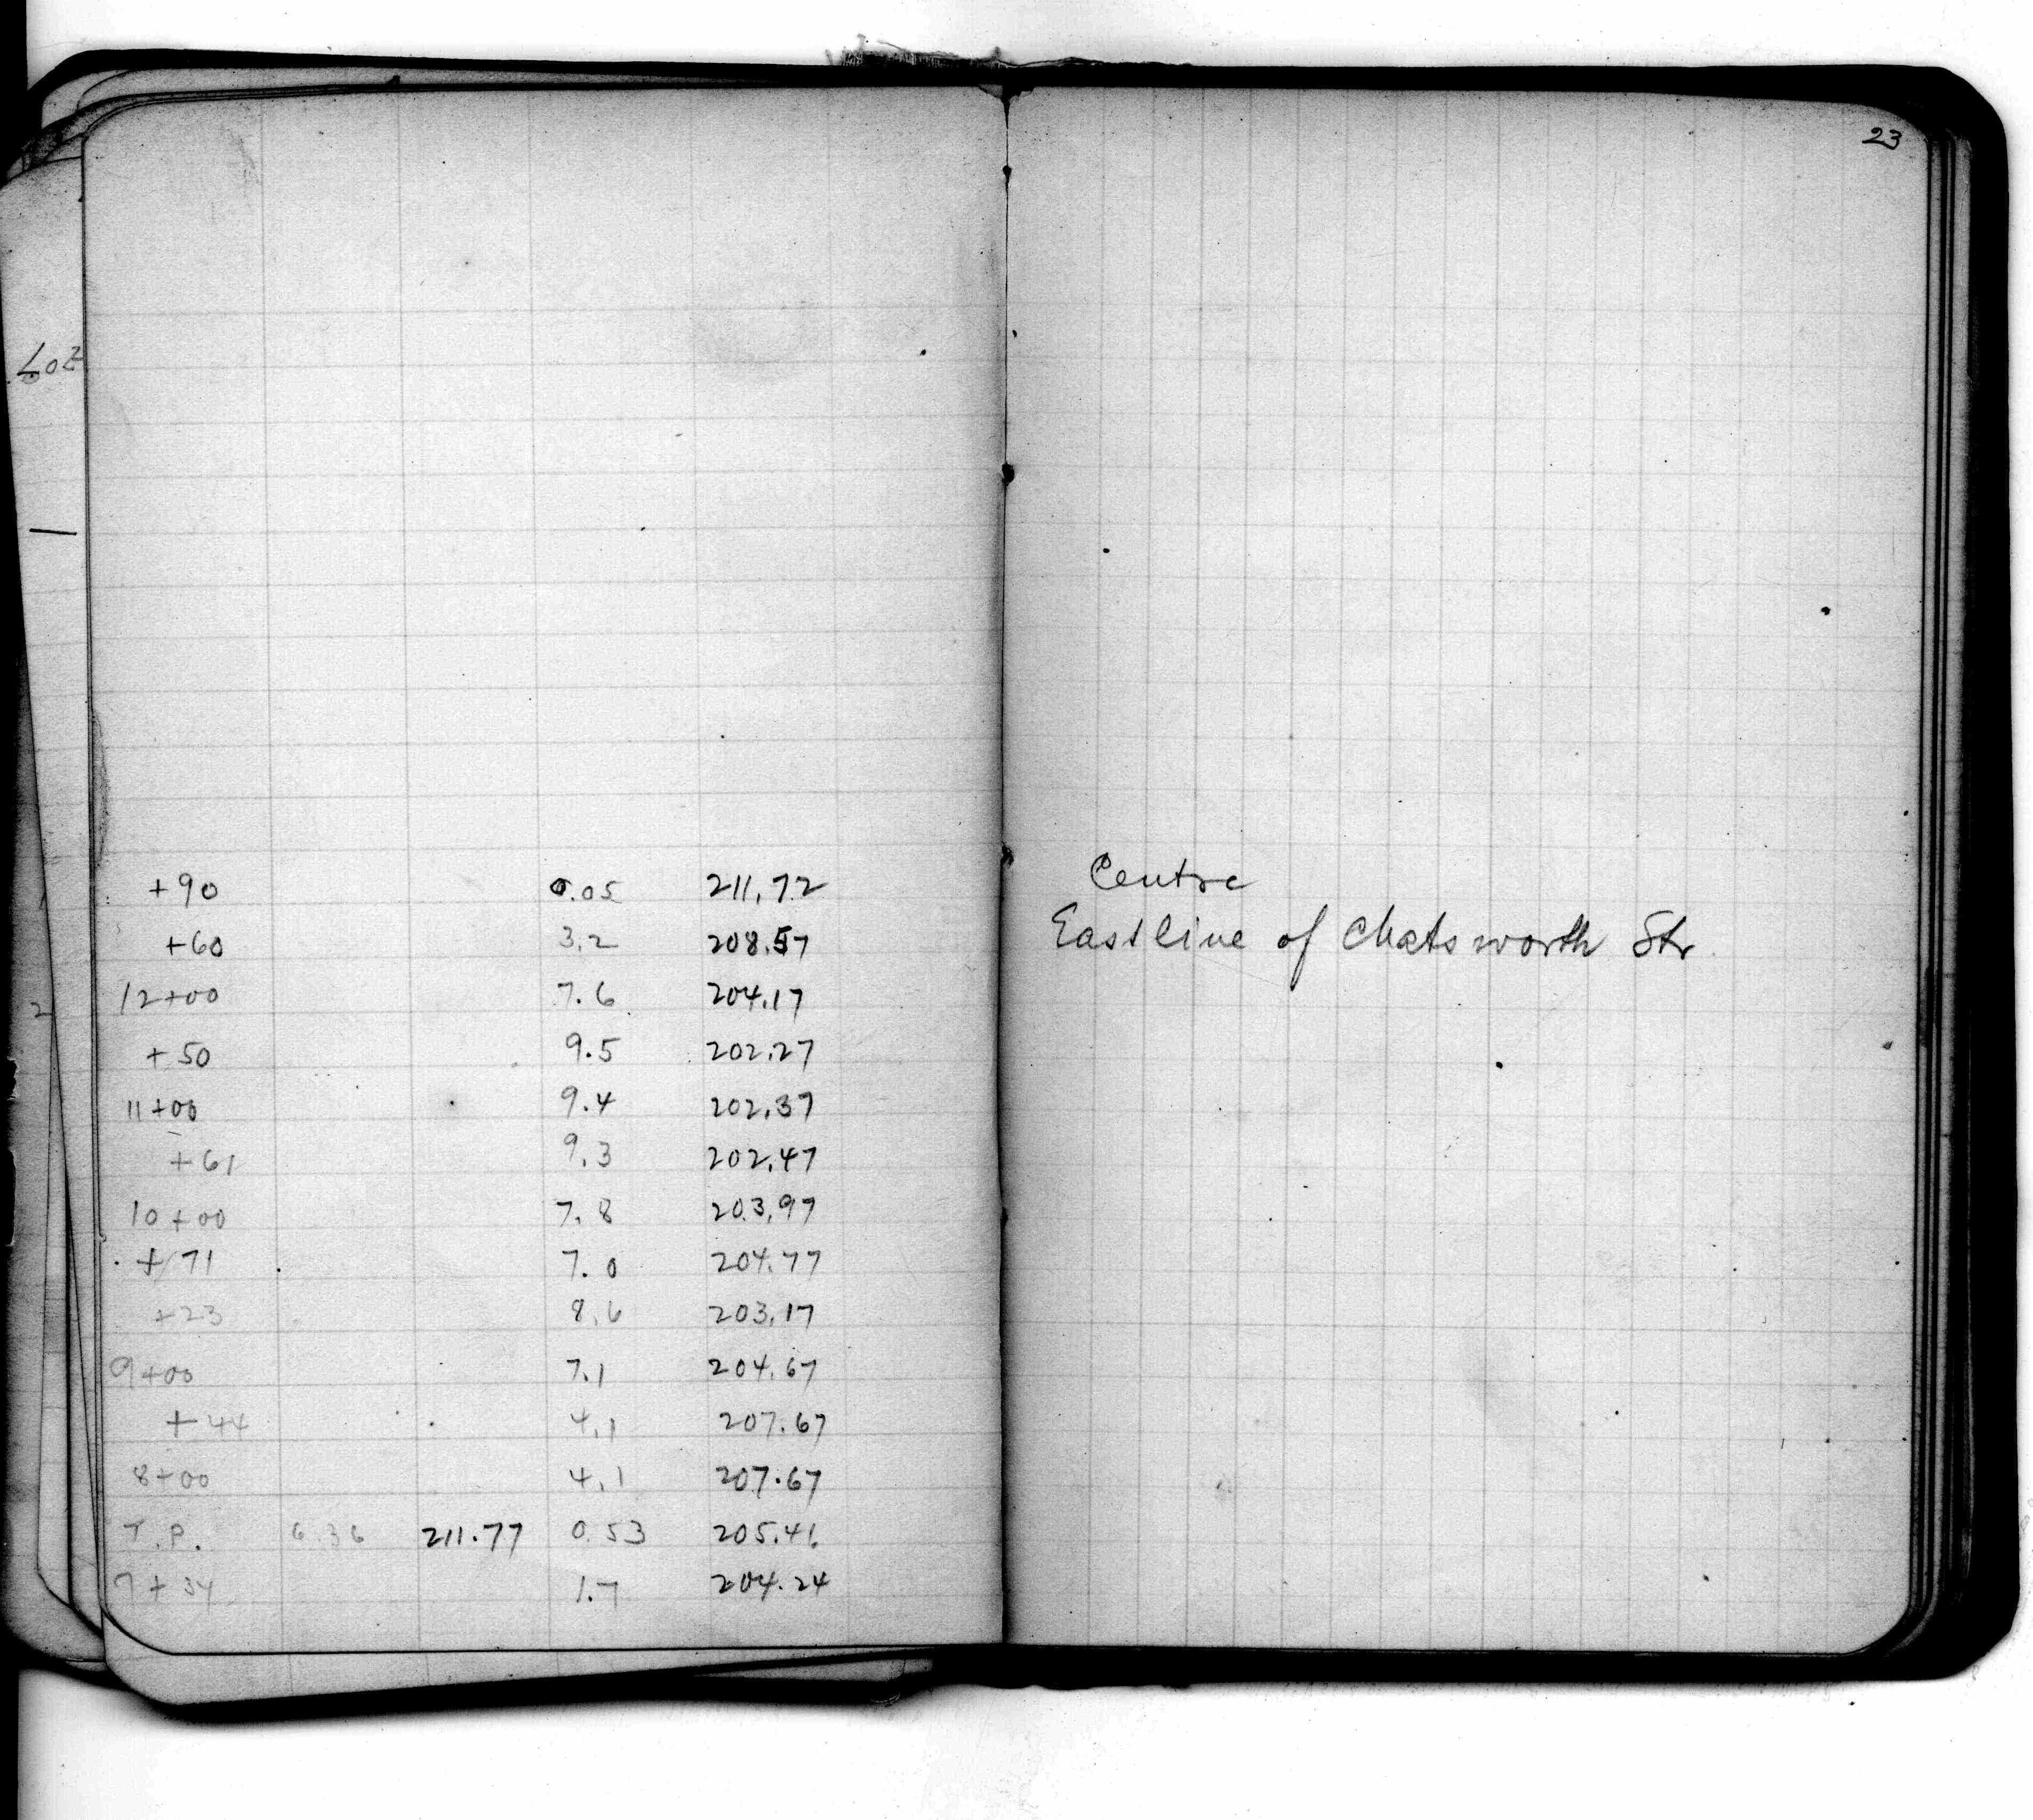 23
Lot
+90 0.05 211.72 Centre
+60 3.2 208.57 East line of Chatsworth Str
12+00 7.6 204.17
+50 9.5 202.27
11+00 9.4 202.37
+61 9.3 202.47
10+00 7.8 203.97
+71 7.0 204.77
+23 8.6 203.17
9+00 7.1 204.67
+44 4.1 207.67
8+00 4.1 207.67
T.P. 6.36 211.77 0.53 205.41
7+34 1.7 204.24